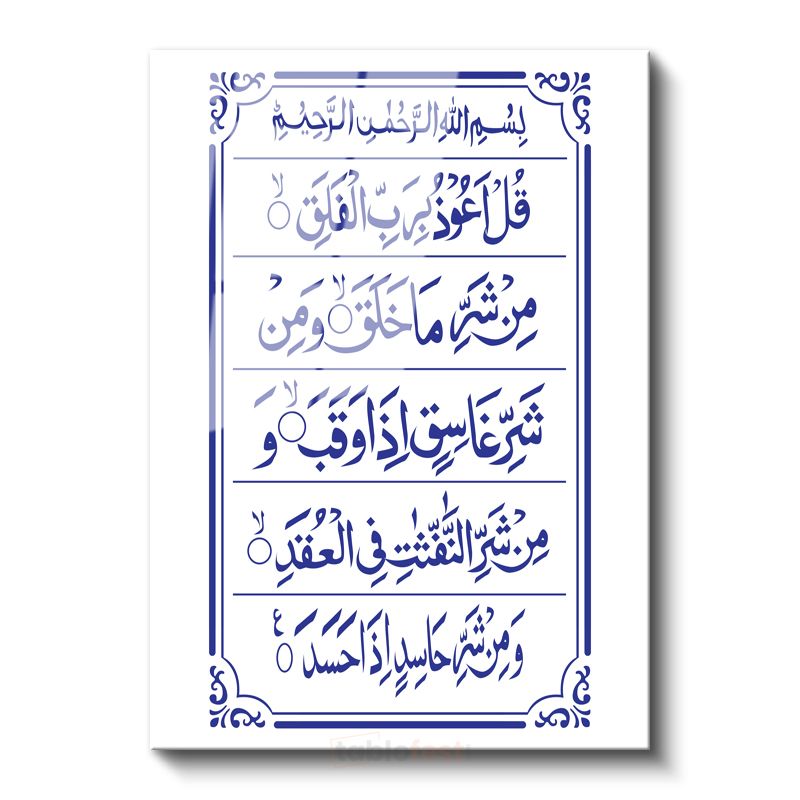 بِسْمِ اللهِ الرَّحْمٰنِ الرَّحِيْمِ
قُلْ اَعُوْذُ بِرَبِّ الْفَلَقِ ۙ
مِنْ شَرِّ مَا خَلَقَ ۙ وَمِنْ
شَرِّ غَاسِقٍ اِذَا وَقَبَ ۙ وَ
مِنْ شَرِّ النَّفّٰثٰتِ فِي الْعُقَدِ ۙ
وَمِنْ شَرِّ حَاسِدٍ اِذَا حَسَدَ ع
tablofest